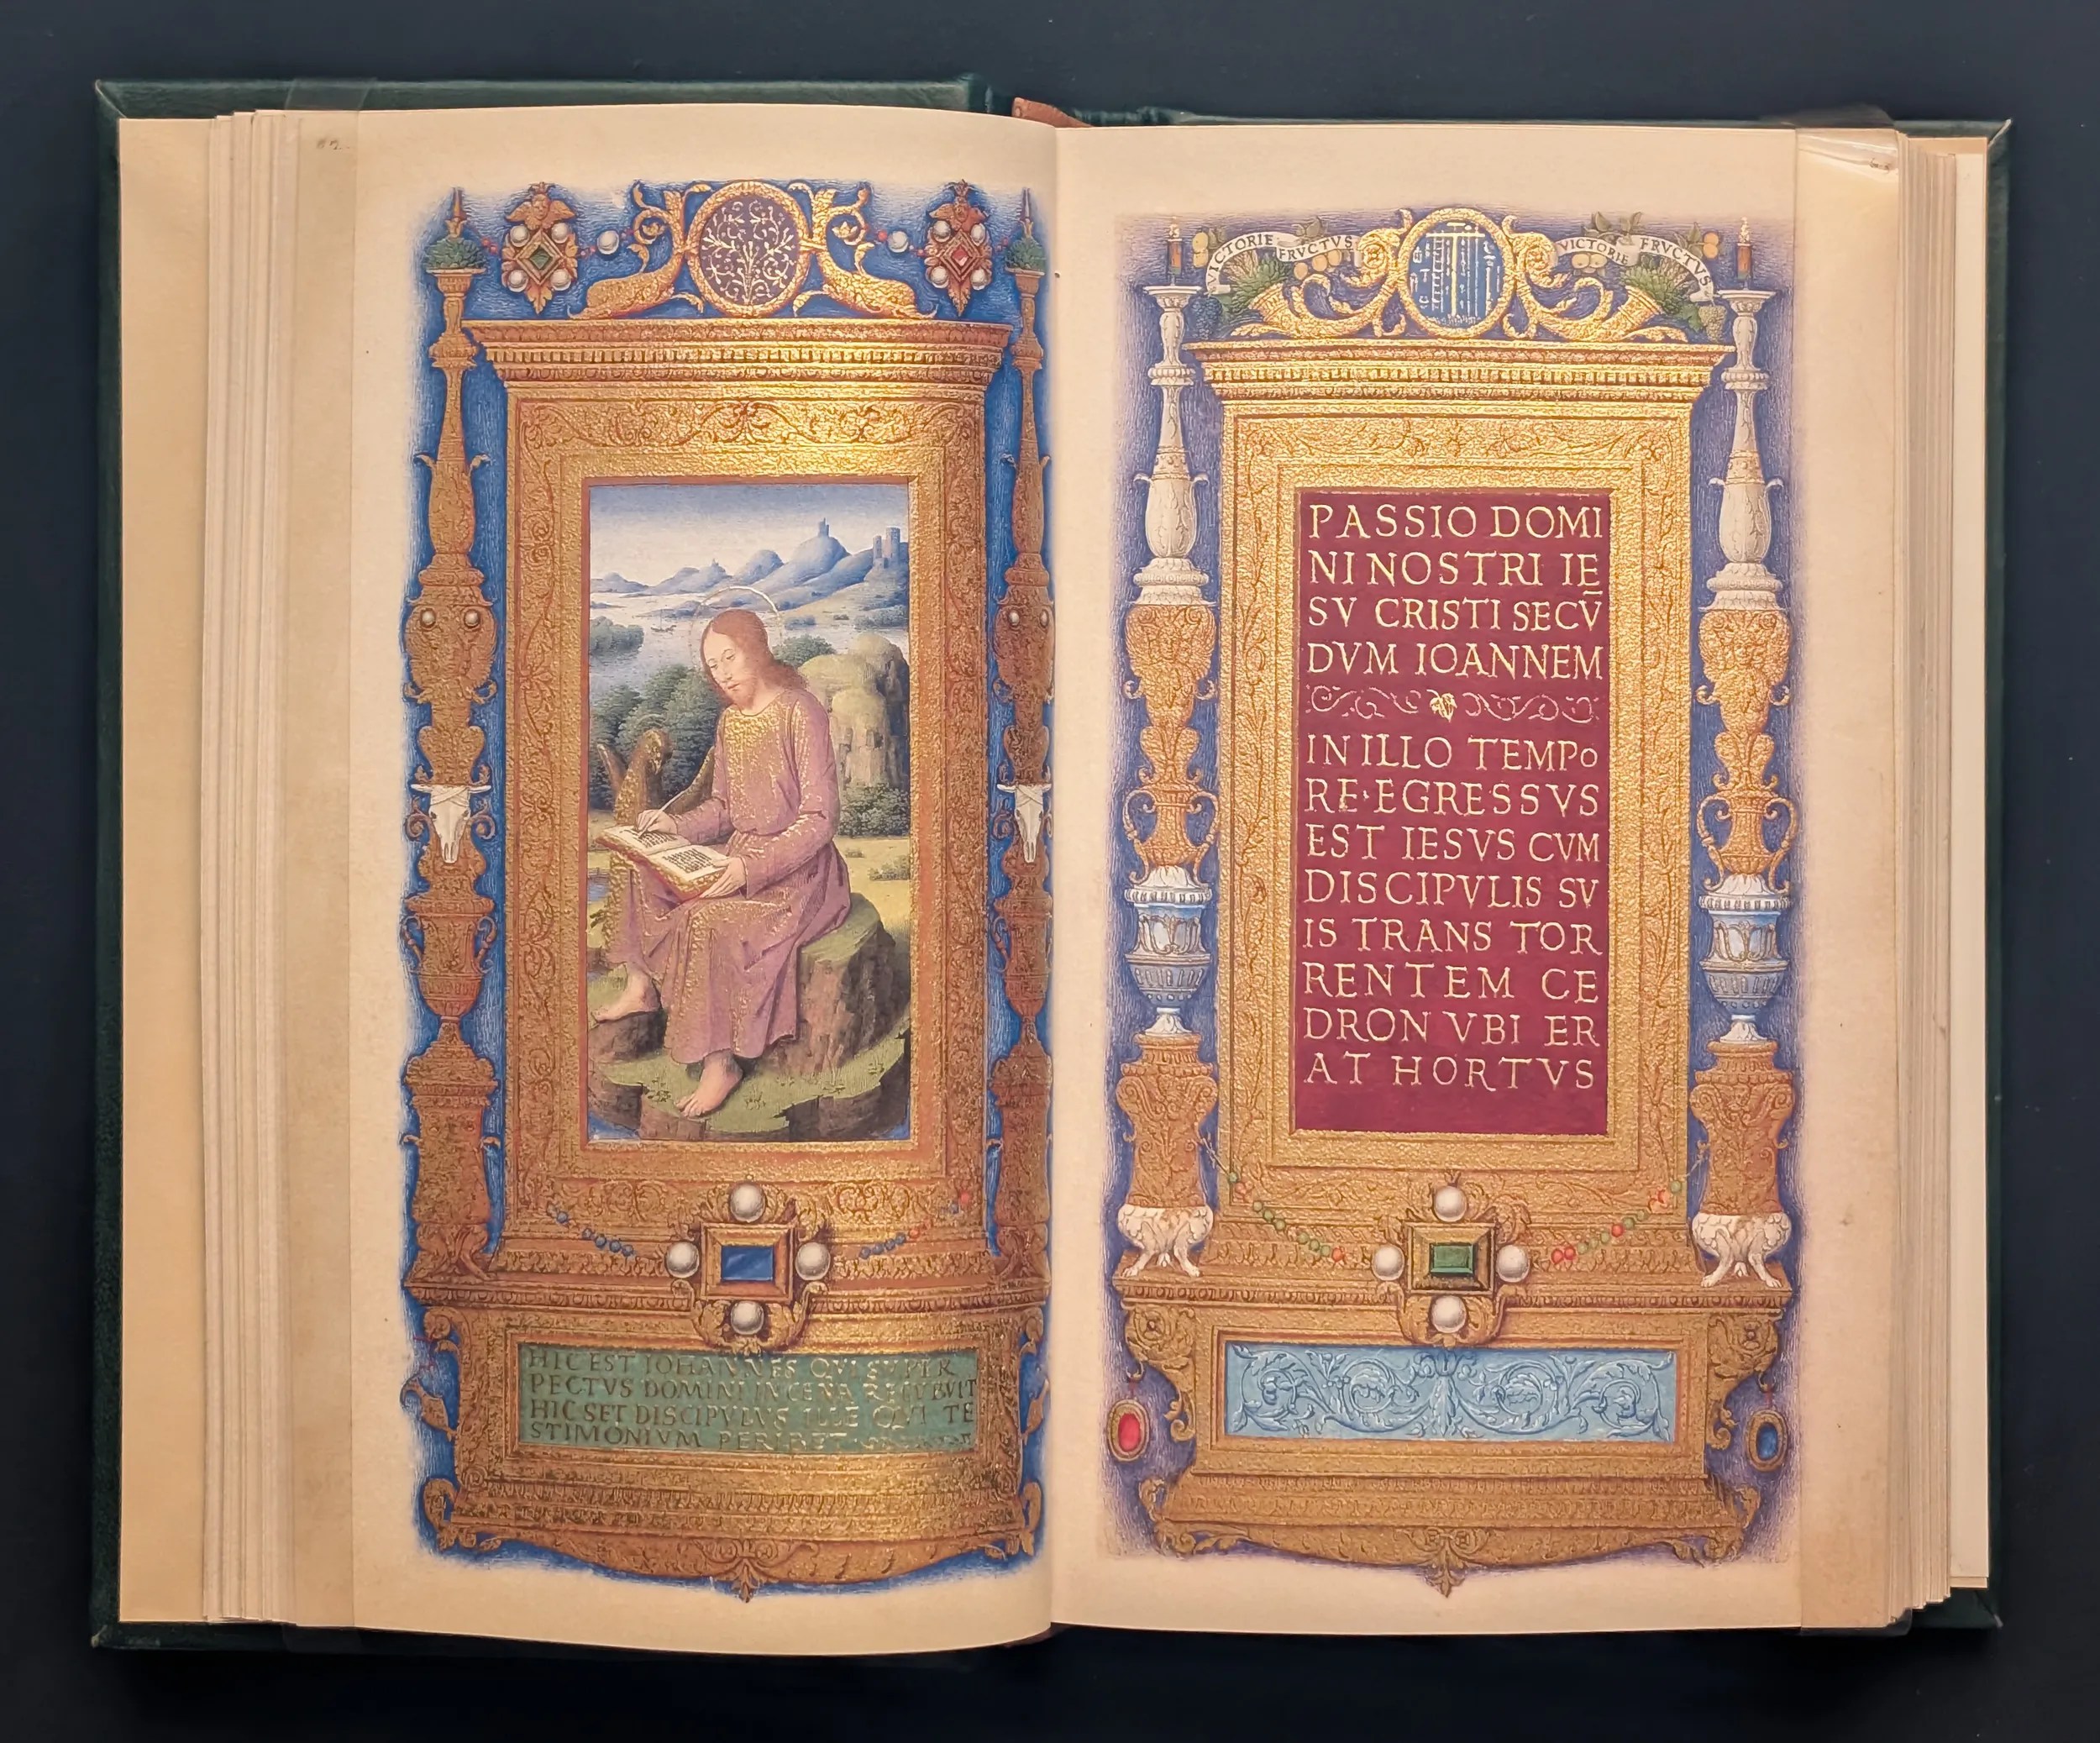 HIC EST IOHANNES QVI SVPER
PECTVS DOMINI IN CENA RECVBVIT
HIC SET DISCIPVLVS ILLE QVI TE
STIMONIVM PERIBET
VICTORIE FRVCTVS
VICTORIE FRVCTVS
PASSIO DOMI
NI NOSTRI IE
SV CRISTI SECV̄
DVM IOANNEM
IN ILLO TEMPO
RE·EGRESSVS
EST IESVS CVM
DISCIPVLIS SV
IS TRANS TOR
RENTEM CE
DRON VBI ER
AT HORTVS